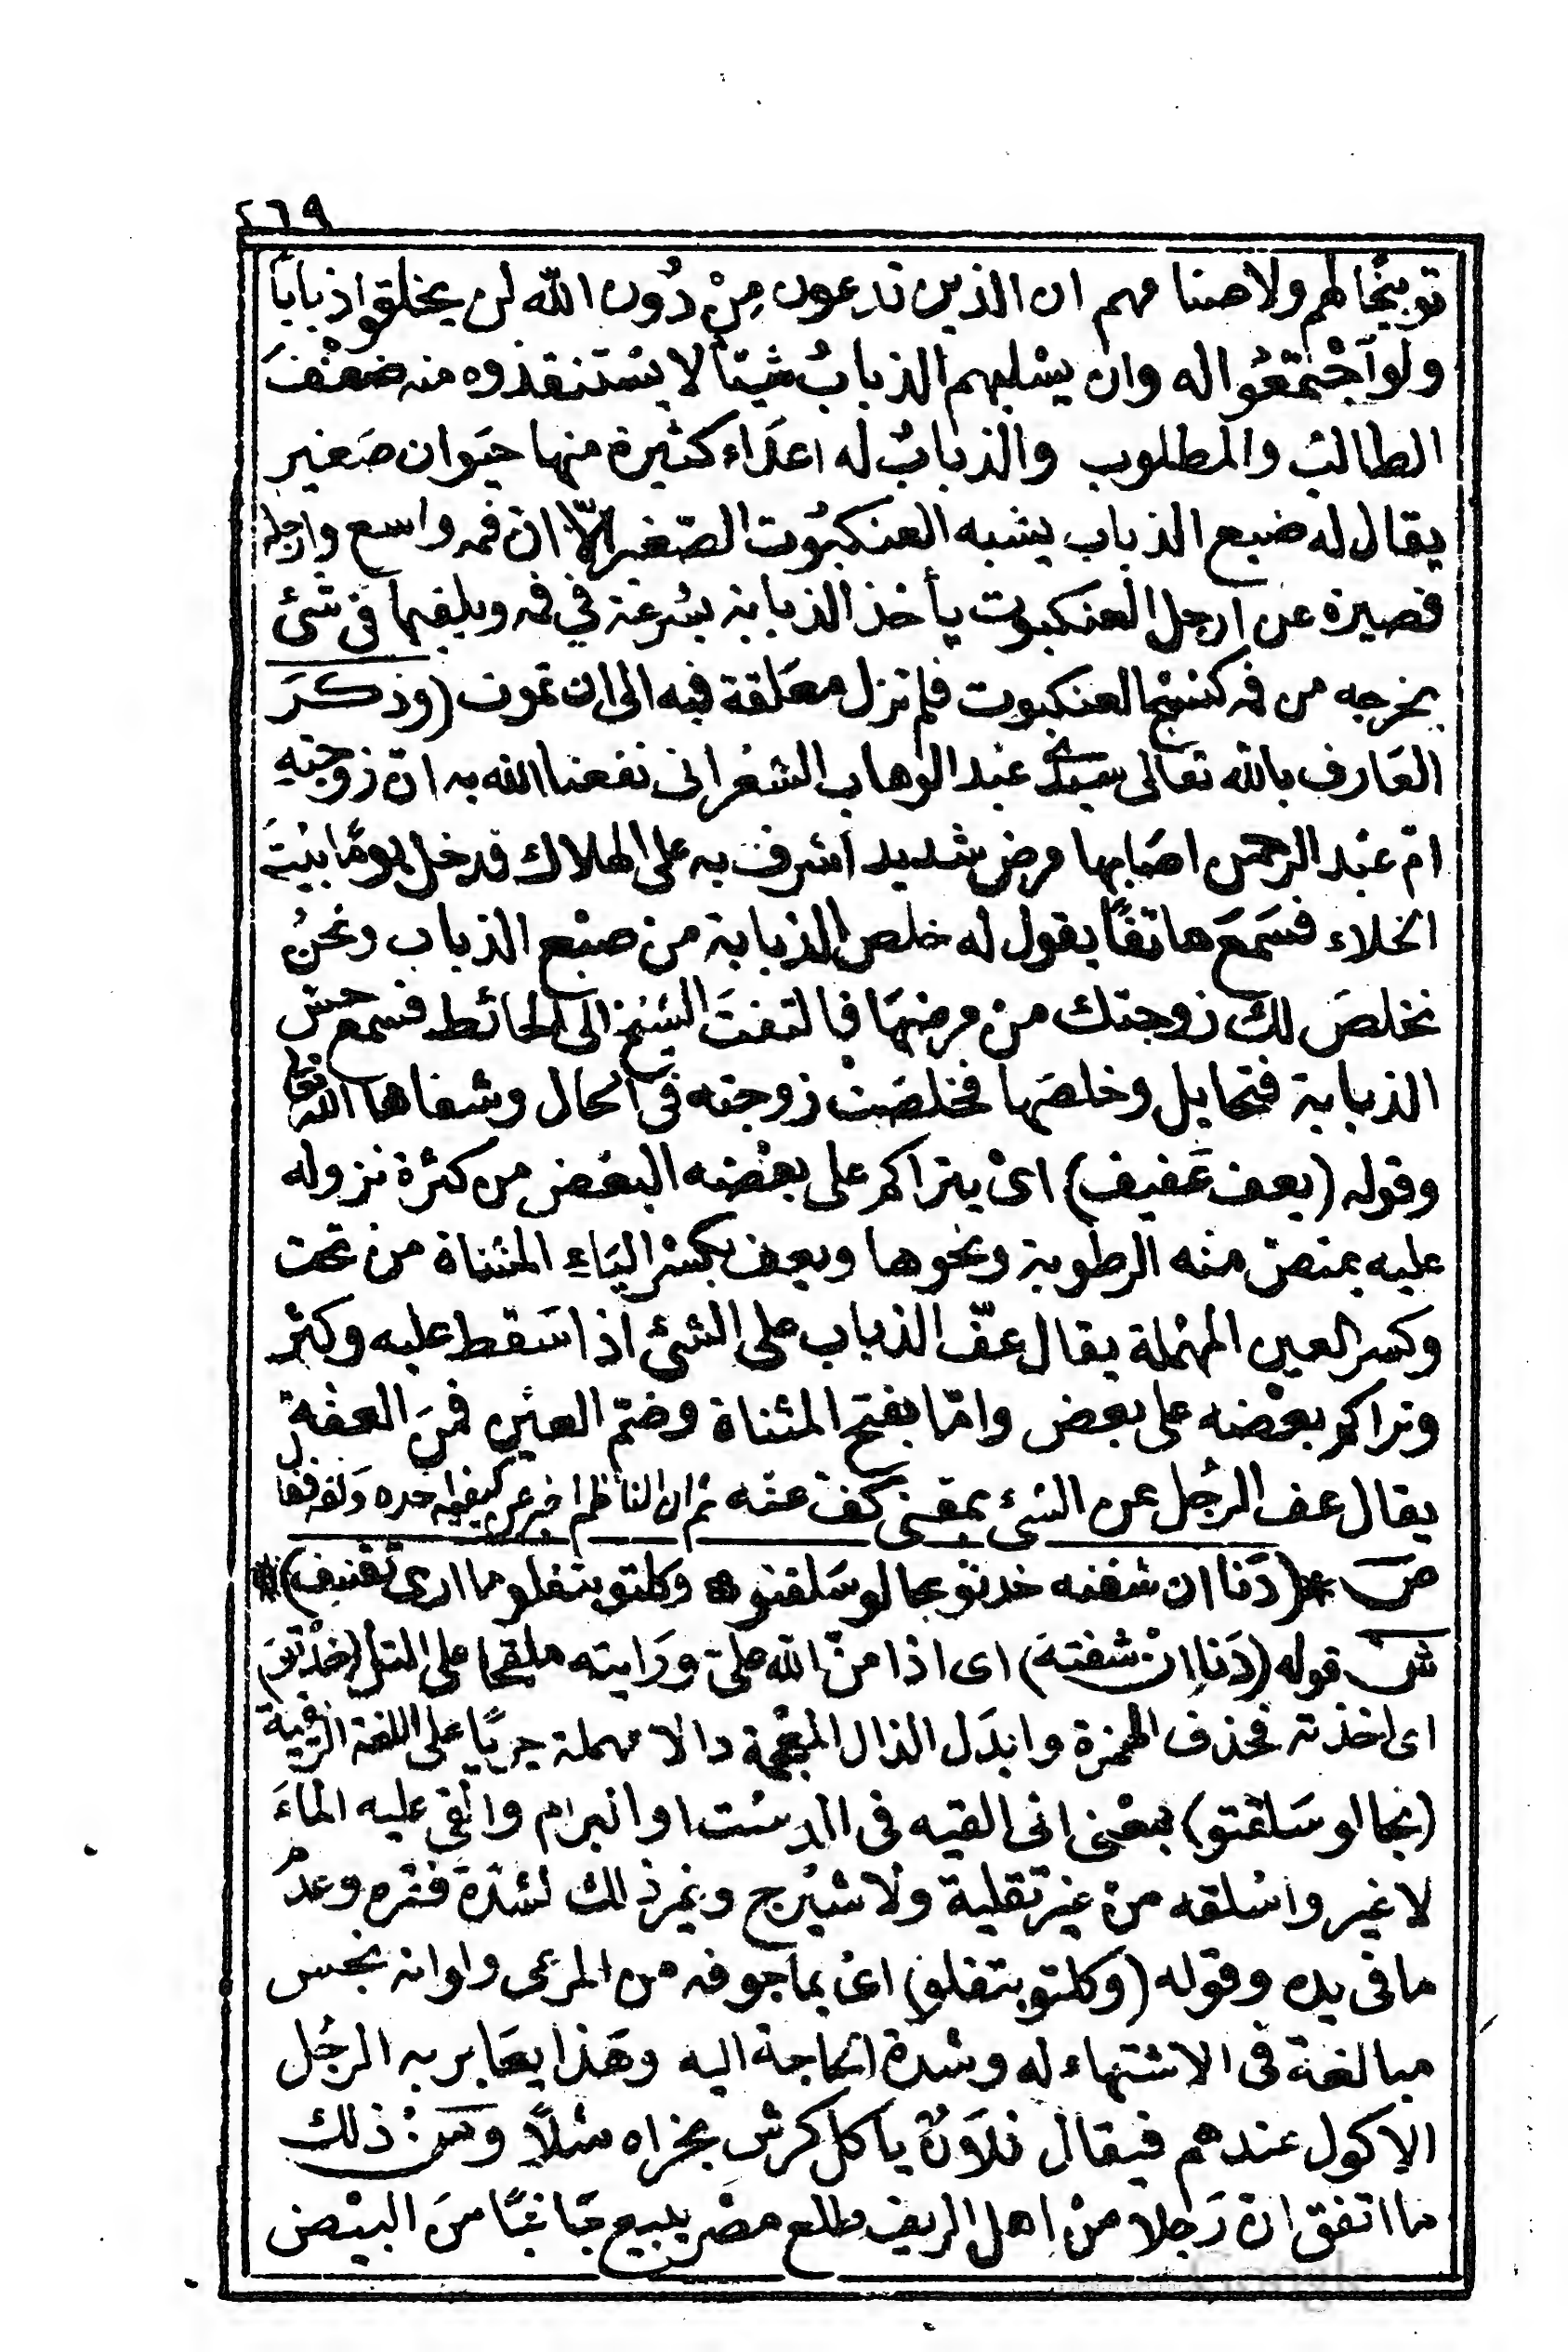 ٢٦٩
توبيخًا لهم ولاصنامهم ان الذين تدعون مِنْ دُون الله لن يخلقوا ذبابًا
ولو اجْتمعُوا له وان يسْلبهم الذبابُ شيئا لا يسْتنقذوه منه ضعْفَ
الطالبُ والمطلوب والذبابُ له اعدَاء كثيرة منها حيَوان صَغير
يقال له ضبع الذباب يشبه العنكبُوت الصّغير الّا ان فمه واسع وارجله
قصيرة عن ارجل العنكبوت يأخذ الذبابة بسُرعة في فمه ويلفها فى شئ
يخرجه من فمه كنسْج العنكبوت فلم تزل معَلقة فيه الى ان تموت (وذكرَ
العَارف بالله تعالى سيدى عبْد الوهاب الشعْرانى نفعنا الله به انّ زوجتهِ
امّ عبْد الرحمن اصَابها مرض شديد اشرف به على الهلاك فدخل يومًا بيْتَ
الخلاء فسَمعَ هاتفًا يقول له خلص الذبابة من ضبْع الذباب ونحنُ
نخلصَ لك زوجتك منْ مرضهَا فالتفتَ الشيْخ الى الحائط فسمع حسّ
الذبابة فتحايل وخلصَها فخلصَتْ زوجته فى الحال وشفاها الله تعا
وقوله (يعف عَفيف) اىْ يتراكم على بعْضه البعْض من كثرة نزوله
عليه يمتصّ منْه الرطوبة ونحْوها ويعف بكسْر اليَاءِ المثناة منْ تحت
وكسر العين المهْملة يقال عفّ الذباب على الشئ اذا سَقط عليه وكثر
وتراكم بعْضه على بعض وامّا بفتح المثناة وضمّ العيْن فمنَ العفّةِ
يقال عف الرجُل عن الشئ بمعْنى كفّ عنْه ثم ان الناظم اخبر عن كيفية اخده وَلقفها
صَ * (دَنا ان شفته خدتو بحالو سَلقتو * وكلتو بتفلو ما ارى تقنيف) *
شَ قوله (دَنا انْ شفتهَ) اى اذا منّ الله علىّ ورَايته ملقحا على التل (خدْتوَ)
اى اخذته فحذف الهمْزة وابدَل الذال المعْجمة دالا مهملة جريًا على اللغة الريفية
(بحالو سَلقتو) بمعْنى انى القيه فى الدسْت او البرام والقى عليه الماءَ
لا غير واسْلقه منْ غيْر تقلية ولا شيْرج وغير ذلك لشدّة فقْره وعدم
ما فى يده وقوله (وكلتو بتفلو) اىْ بما جوفه من المرعى ولو انه نجس
مبالغة فى الاشتهاء له وشدة الحَاجة اليه وهَذا يعَاير به الرجُل
الاكول عندهم فيقال فلَانٌ ياكل كرش بخراه مثلاً ومنْ ذلك
ما اتفق انّ رَجلا منْ اهل الريف طلع مصْر يبيع جَانبًا منَ البيْض